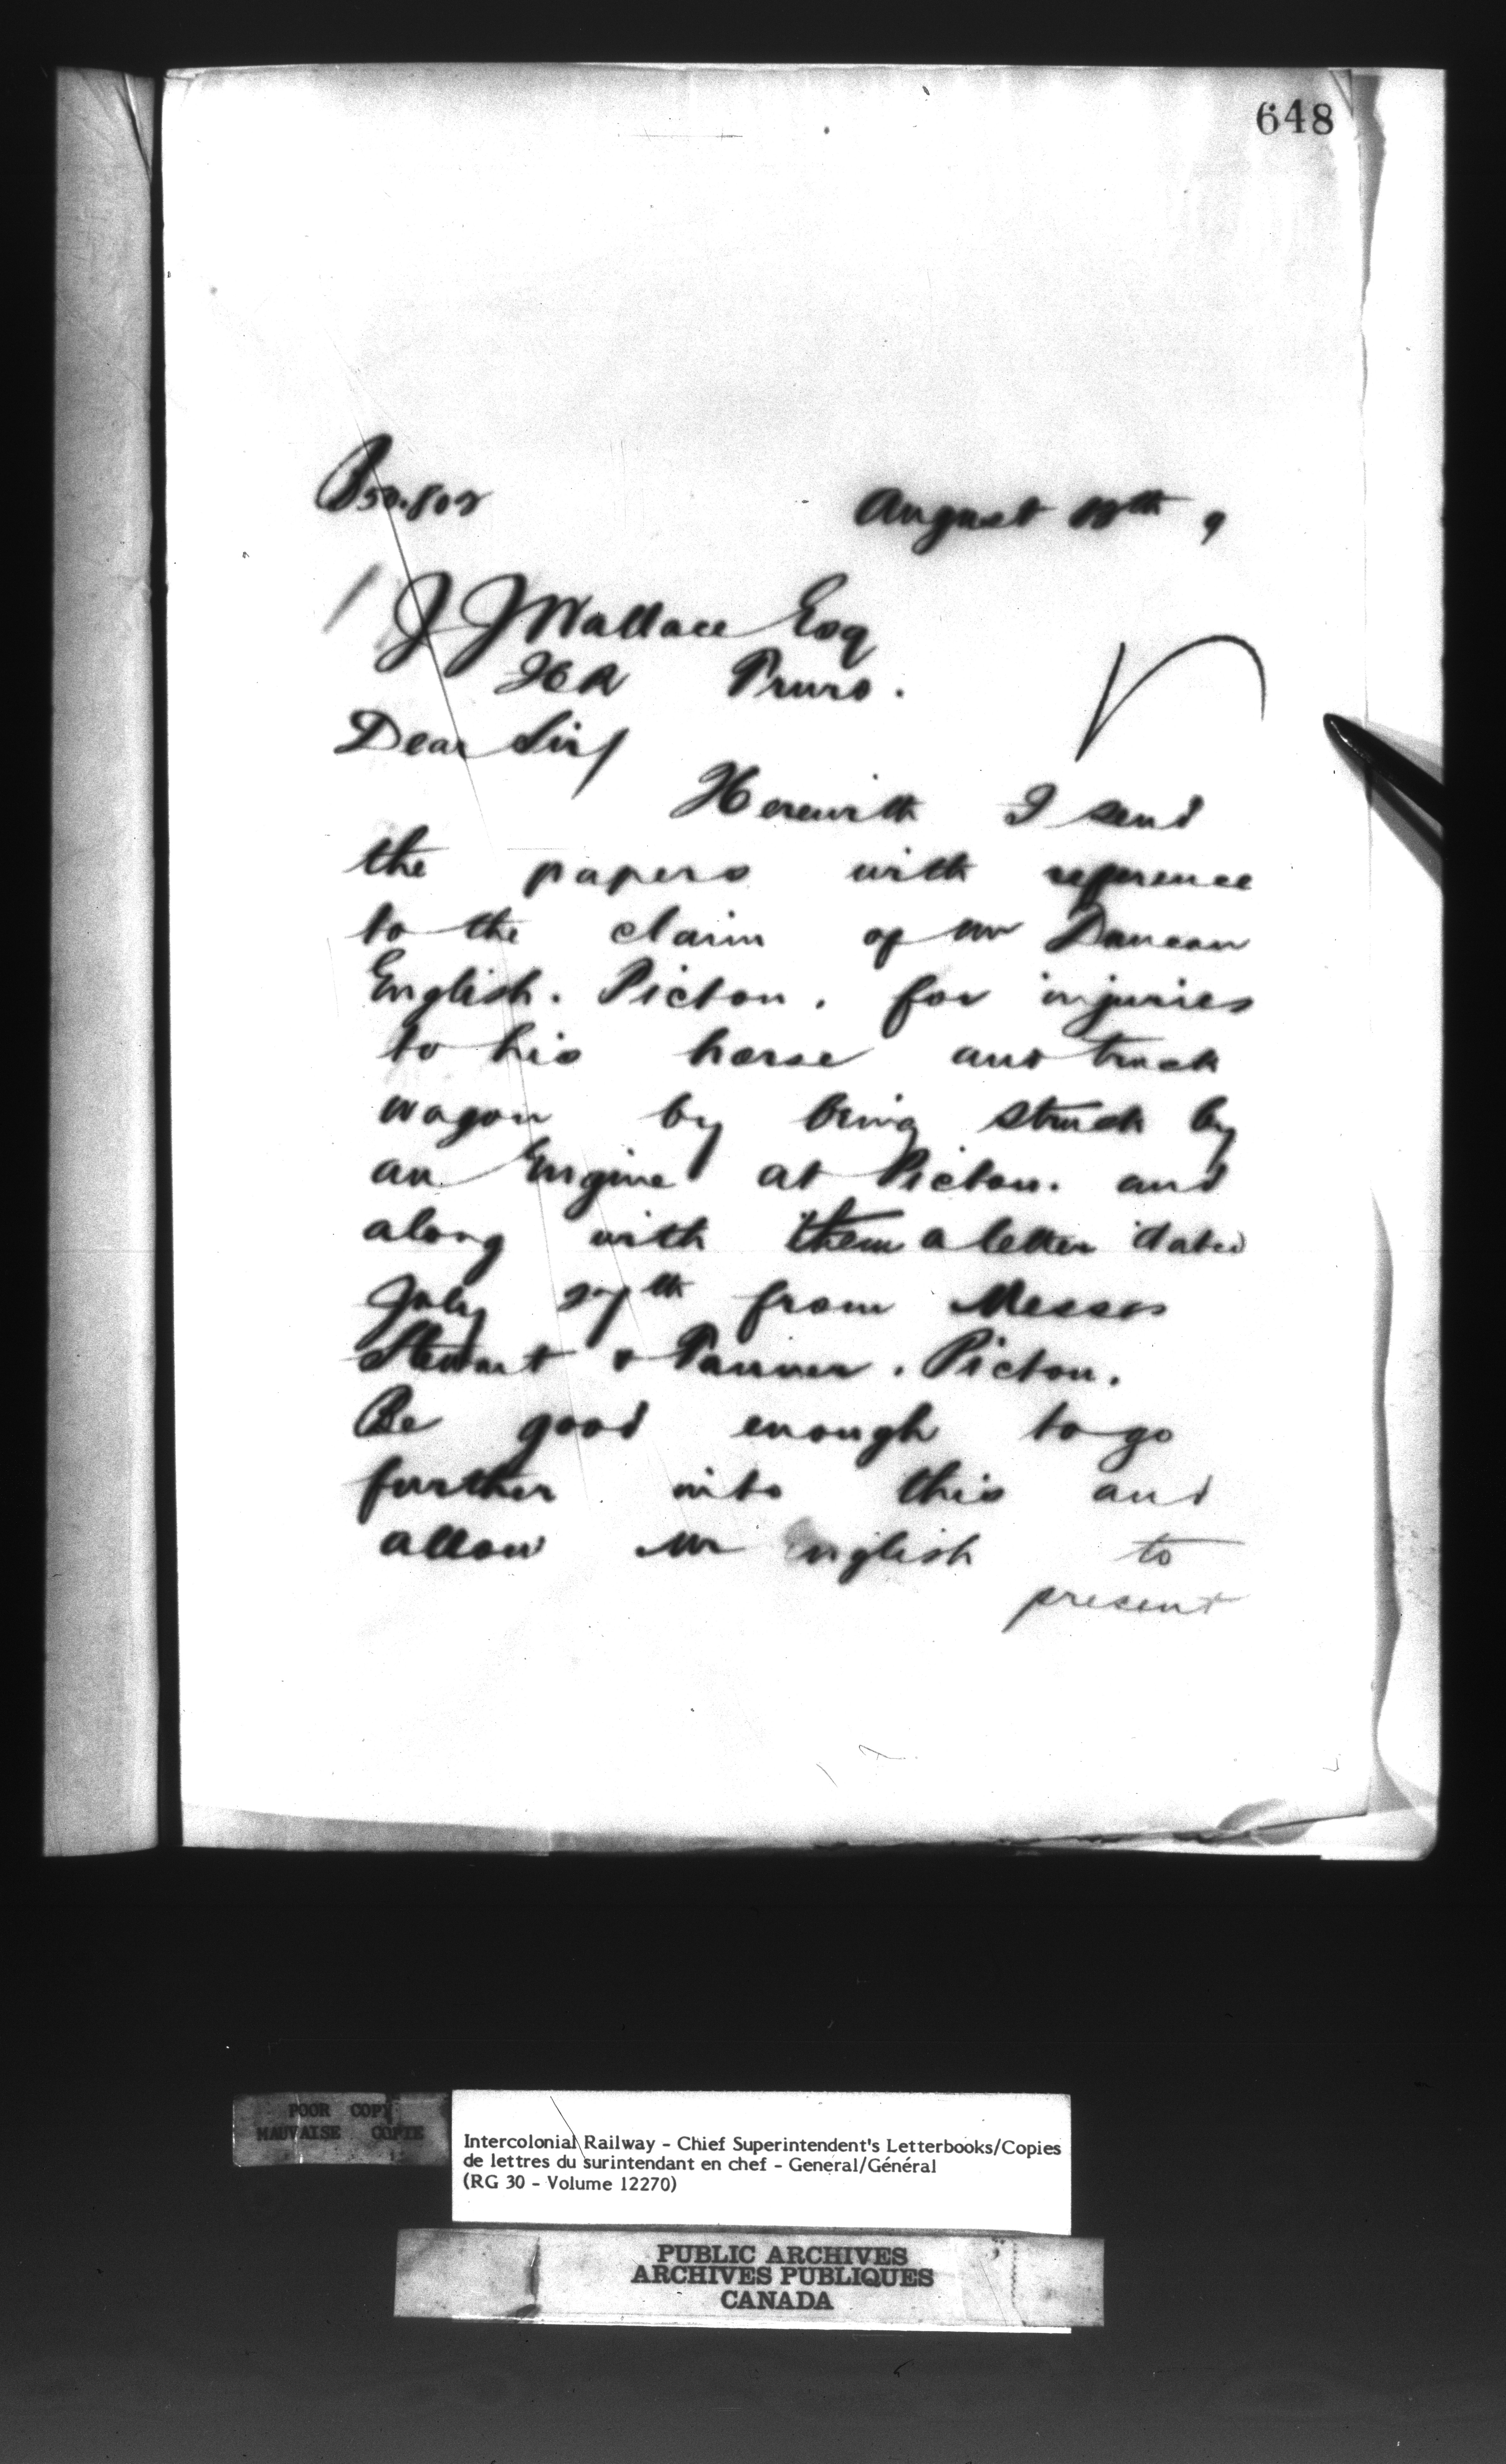 648
August 18th 9
J J Wallace Esq
ICR Truro.
Dear Sir/
Herewith I send
the papers with reference
to the claim of Mr Duncan
English. Pictou. for injuries
to his horse and truck
wagon by being struck by
an Engine at Pictou. and
along with them a letter dated
July 27th from Messrs
Stewart & Tanner. Pictou.
Be good enough to go
further into this and
allow Mr English to
present
POOR COPY
MAUVAISE COPIE
Intercolonial Railway - Chief Superintendent's Letterbooks/Copies
de lettres du surintendant en chef - General/Général
(RG 30 - Volume 12270)
PUBLIC ARCHIVES
ARCHIVES PUBLIQUES
CANADA